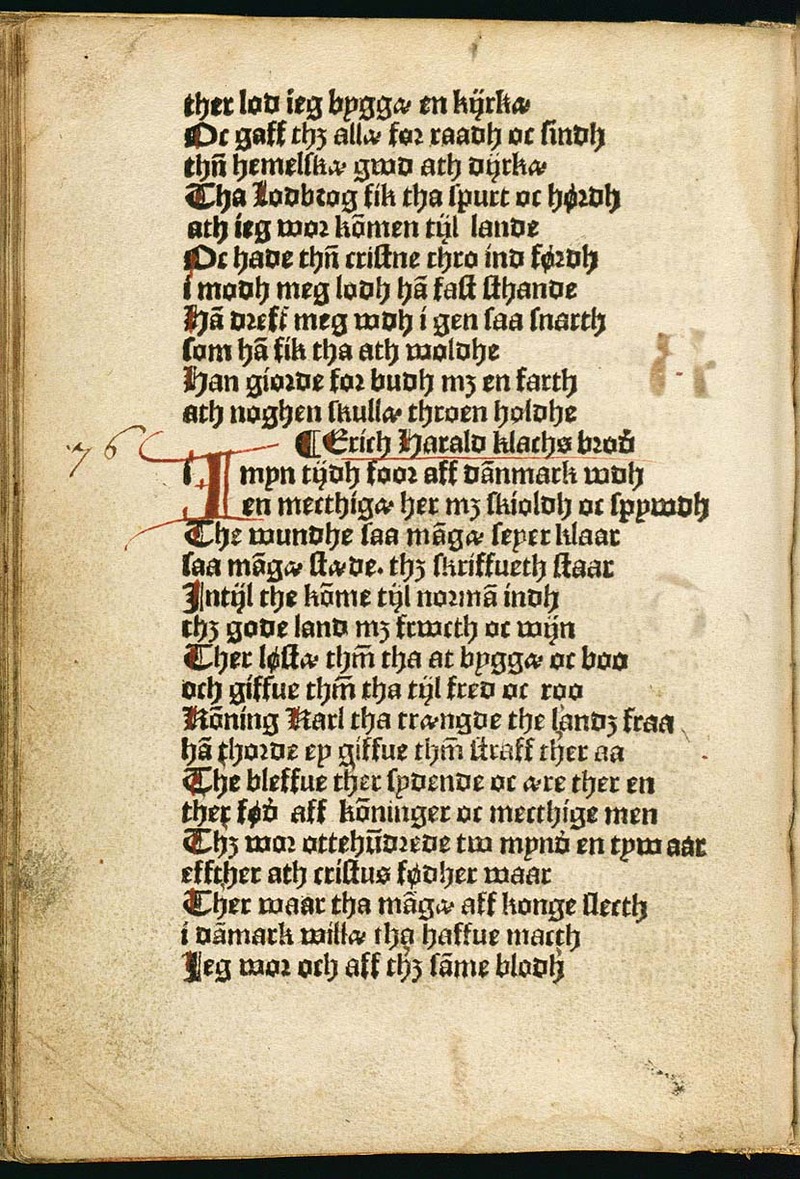 ther lod ieg byggæ en kijrkæ
Oc gaff thꝫ allæ for raadh oc sindh
thn̄ hemelskæ gwd ath dijrkæ
Tha Lodbrog fik tha spurt oc hørdh
ath ieg wor kōmen tijl lande
Oc hade thn̄ cristne thro ind førdh
i modh meg lodh hā fast sthande
Hā dreff meg wdh i gen saa snarth
som hā fik tha ath woldhe
Han giorde for budh mꝫ en farth
ath noghen skullæ throen holdhe
¶Erich Harald klachs brod̄
76
I myn tijdh foor aff dānmark wdh
en mecthigæ her mꝫ skioldh oc spywdh
The wundhe saa māgæ seyer klaar
saa māgæ stæde. thꝫ skriffueth staar
Intijl the kōme tijl normā indh
thꝫ gode land mꝫ frwcth oc wijn
Ther løstæ thm̄ tha at byggæ oc boo
och giffue thm̄ tha tijl fred oc roo
Kōning Karl tha trængde the landꝫ fraa
hā thorde ey giffue thm̄ straff ther aa
The bleffue ther sydende oc ære ther en
ther fød̄ aff kōninger oc mecthige men
Thꝫ wor ottehūdrede tw mynd̄ en tyw aar
effther ath cristus fødher waar
Ther waar tha māgæ aff konge slecth
i dāmark willæ tha haffue macth
Ieg wor och aff thꝫ sāme blodh